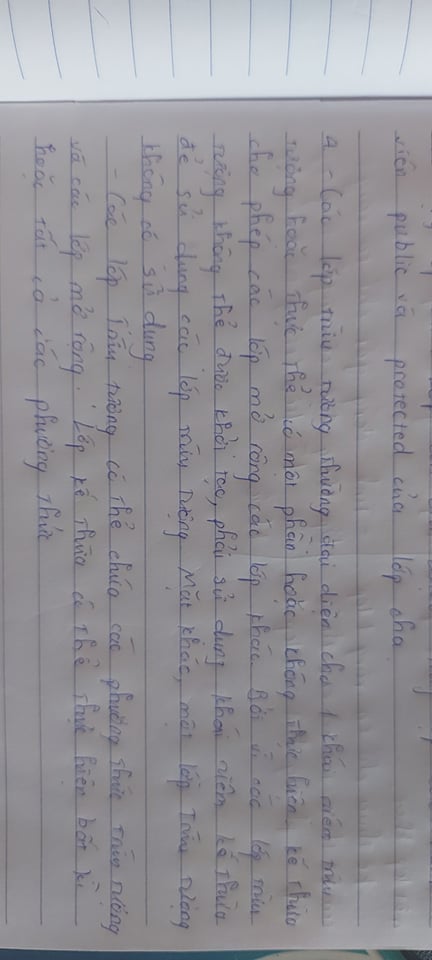 viên public và protected của lớp cha
4 - Các lớp trừu tượng thường đại diện cho 1 khái niệm trừu
tượng hoặc thực thể có một phần hoặc không thực hiện. kế thừa
cho phép các lớp mở rộng các lớp khác. Bởi vì các lớp trừu
tượng không thể được khởi tạo, phải sử dụng khái niệm kế thừa
để sử dụng các lớp trừu tượng Mặt khác, một lớp Trừu tượng
không có sử dụng
- Các lớp Trừu tượng có thể chứa các phương thức trừu tượng
và các lớp mở rộng. Lớp kế thừa có thể thực hiện bất kì
hoặc tất cả các phương thức